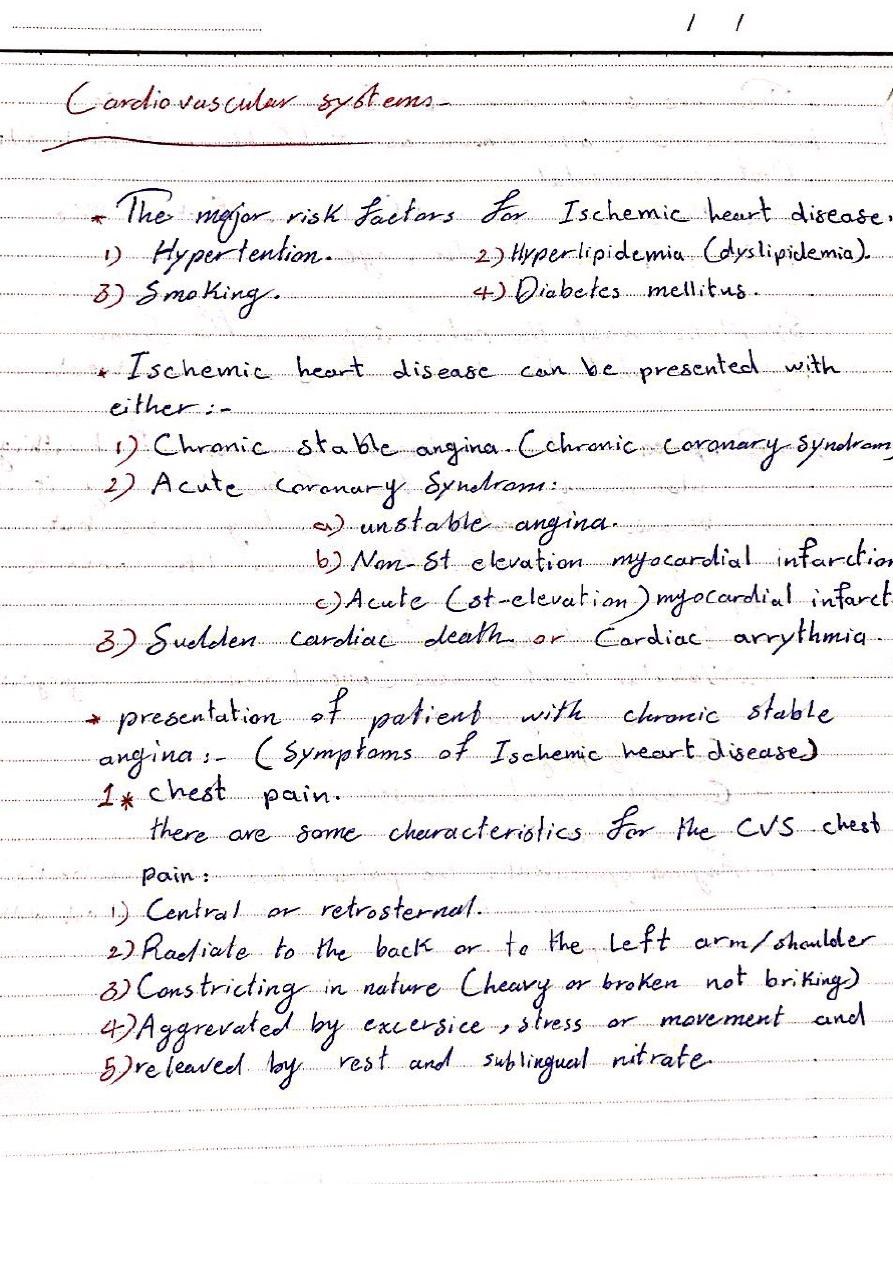 / /
Cardiovascular systems-
* The major risk factors for Ischemic heart disease.
1) Hypertention. 2) Hyperlipidemia (dyslipidemia).
3) Smoking. 4) Diabetes mellitus.
* Ischemic heart disease can be presented with
either :-
1) Chronic stable angina. (chronic coronary syndrom
2) Acute coronary Syndrom:
a) unstable angina.
b) Non-St elevation myocardial infarction
c) Acute (st-elevation) myocardial infarct
3) Sudden cardiac death or Cardiac arrythmia.
* presentation of patient with chronic stable
angina :- (Symptoms of Ischemic heart disease)
1* chest pain.
there are some characteristics for the CVS chest
pain :
1) Central or retrosternal.
2) Radiate to the back or to the left arm/shoulder
3) Constricting in nature (heavy or broken not briking)
4) Aggrevated by excersice, stress or movement and
5) releaved by rest and sublingual nitrate.